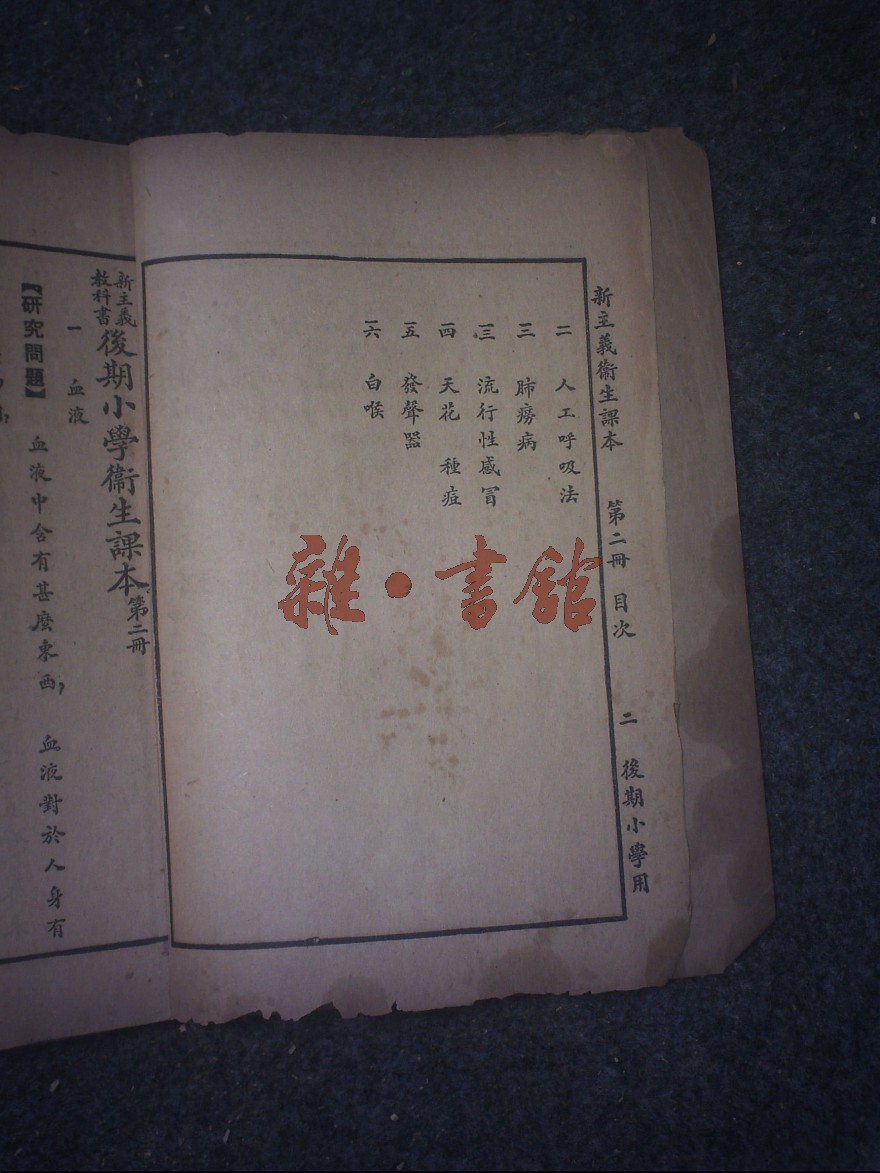 新主義衞生課本 第二冊 目次 二 後期小學用
一一 人工呼吸法
一二 肺癆病
一三 流行性感冒
一四 天花 種痘
一五 發聲器
一六 白喉
新主義教科書 後期小學衞生課本 第二冊
一 血液
【研究問題】 血液中含有甚麼東西, 血液對於人身有
雜·書館